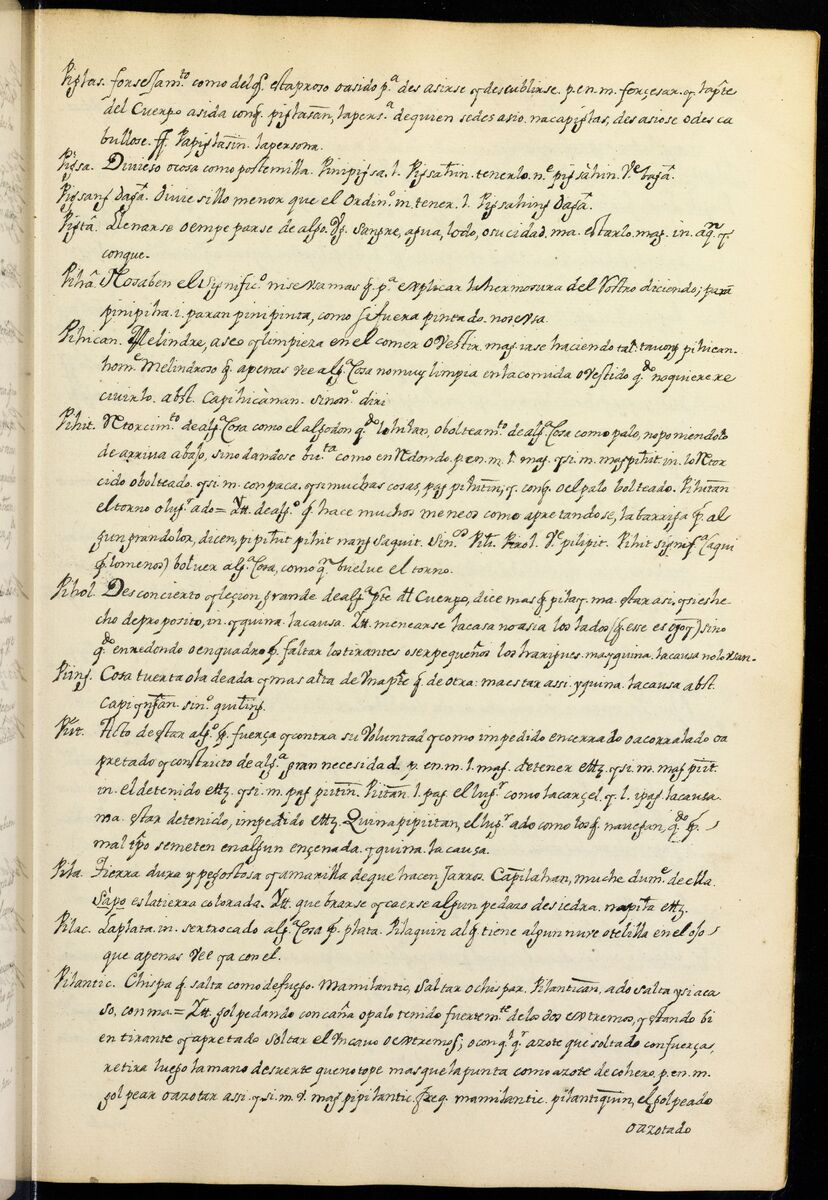 Pigtas. forsejam.to como del q. esta preso o asido p.a des asirse y descubllirse. p. en. m. forçejar. y la p.te
del Cuerpo asida conq. pigtasan, la pers.a de quien sedes asio. nacapigtas, des asiose o des ca
bullose. Papigtasin. la persona.
Pigsa. Divieso o cosa como postemilla. Pinipigsa. l. Pigsahin. tenerlo. n.e pigsahin. V.e baga.
Pigsang Daga. Divie sillo menor que el Ordin.o in. tener. l. Pigsahing Daga.
Pigta. Llenarse o empe parse de algo. Vg. Sangre, agua, lodo, o sucidad. ma. estarlo. mag. in. aq.n y.
conque.
Piha. No saben el signific.o ni se usa mas q. p.a explicar la hermosura del Rostro diciendo; paran
pinipiha. i. paran pinipinta, como si fuera pintado. no se usa.
Pihican. Melindre, aseo y limpieza en el comer o Vestir. mag. irse haciendo tal. tavong pihican.
hom.e Melindroso q. apenas vee alg.a Cosa no muy limpia en la comida o Vestido q.do no quiere re
civirlo. abst. Capihicanan. sinon.o diri
Pihit. Retorcim.to de alg.a Cosa como el algodon q.do lo hilan, o bolteam.to de alg.a Cosa como palo, no poniendolo
de arriva abajo, sino dandose bu.ta como en Redondo. p. en. m. l. mag. y si. m. magpihit. in. lo Retor
cido o bolteado. y si. m. con paca. y si muchas cosas, pag pihitin; y. conq. o el palo bolteado. Pihitan
el torno o lug.r ado = Itt. de alg.o q. hace muchos meneos como apretandose, la barriga q. al
gun gran dolor, dicen, pipihit pihit nang saquit. Sin.os Pili. Pirol. V.e pilipit. Pihit signif.a (aqui
q. lo menos) bolver alg.a Cosa, como q.n buelve el torno.
Pihol. Desconcierto y leçion grande de alg.a p.te del Cuerpo, dice mas q. pilay. ma. estar asi. y si es he
cho de proposito, in. y quina. la causa. Itt. menearse la casa no asia los lados (q. esse es ) sino
q.do en redondo o en quadro q. faltar los tirantes o ser pequeños los harigues. mayquina. la causa no lo usan.
Piing. Cosa tuerta o ladeada y mas alta de una p.te q. de otra. ma estar assi. y quina. la causa abst.
Capi ynğan. sin.o quiling.
Piit. Acto de estar alg.o q. fuerça y contra su Voluntad y como impedido encerrado o acorralado o a
pretado y construto de alg.a gran necesidad. p. en. m. l. mag. detener ettz. y si. m. mag piit.
in. el detenido ettz. y si. m. pag piitin. Piitan. l. pag. el lug.r como la carçel. y. l. ipag. la causa.
na. estar detenido, impedido ettz. Quina pipiitan, el lug.r ado como los q. navegan, q.do q.
mal tpo se meten en algun ençenada. y quina. la causa.
Pila. Tierra dura y pegostosa y amarilla de que hacen Jarros. Capilahan, muche dum.e de ella.
Sapo es la tierra colorada. Itt. que brarse y caerse algun pedazo de siedra. napila ettz.
Pilac. La plata. in. ser trocado alg.a Cosa q. plata. Pilaquin al q. tiene algun nuve o telilla en el ojo
que apenas vee ya con el.
Pilantic. Chispa q. salta como de fuego. Mamilantic, saltar o chispar. Pilantican, ado salta y si aca
so, con ma = Itt. golpedando con caña o palo tenido fuertem.te de los dos extremos, y estando bi
en tirante y apretado soltar el un cavo o extremos; o con q.l q.r azote que soltado con fuerças,
retira luego la mano de suerte que no tope mas que la punta como azote de cohero. p. en. m.
golpear o azotar assi. y si. m. l. mag pipilantic. freq. mamilantic. pilantiquin, el golpeado
o azotado